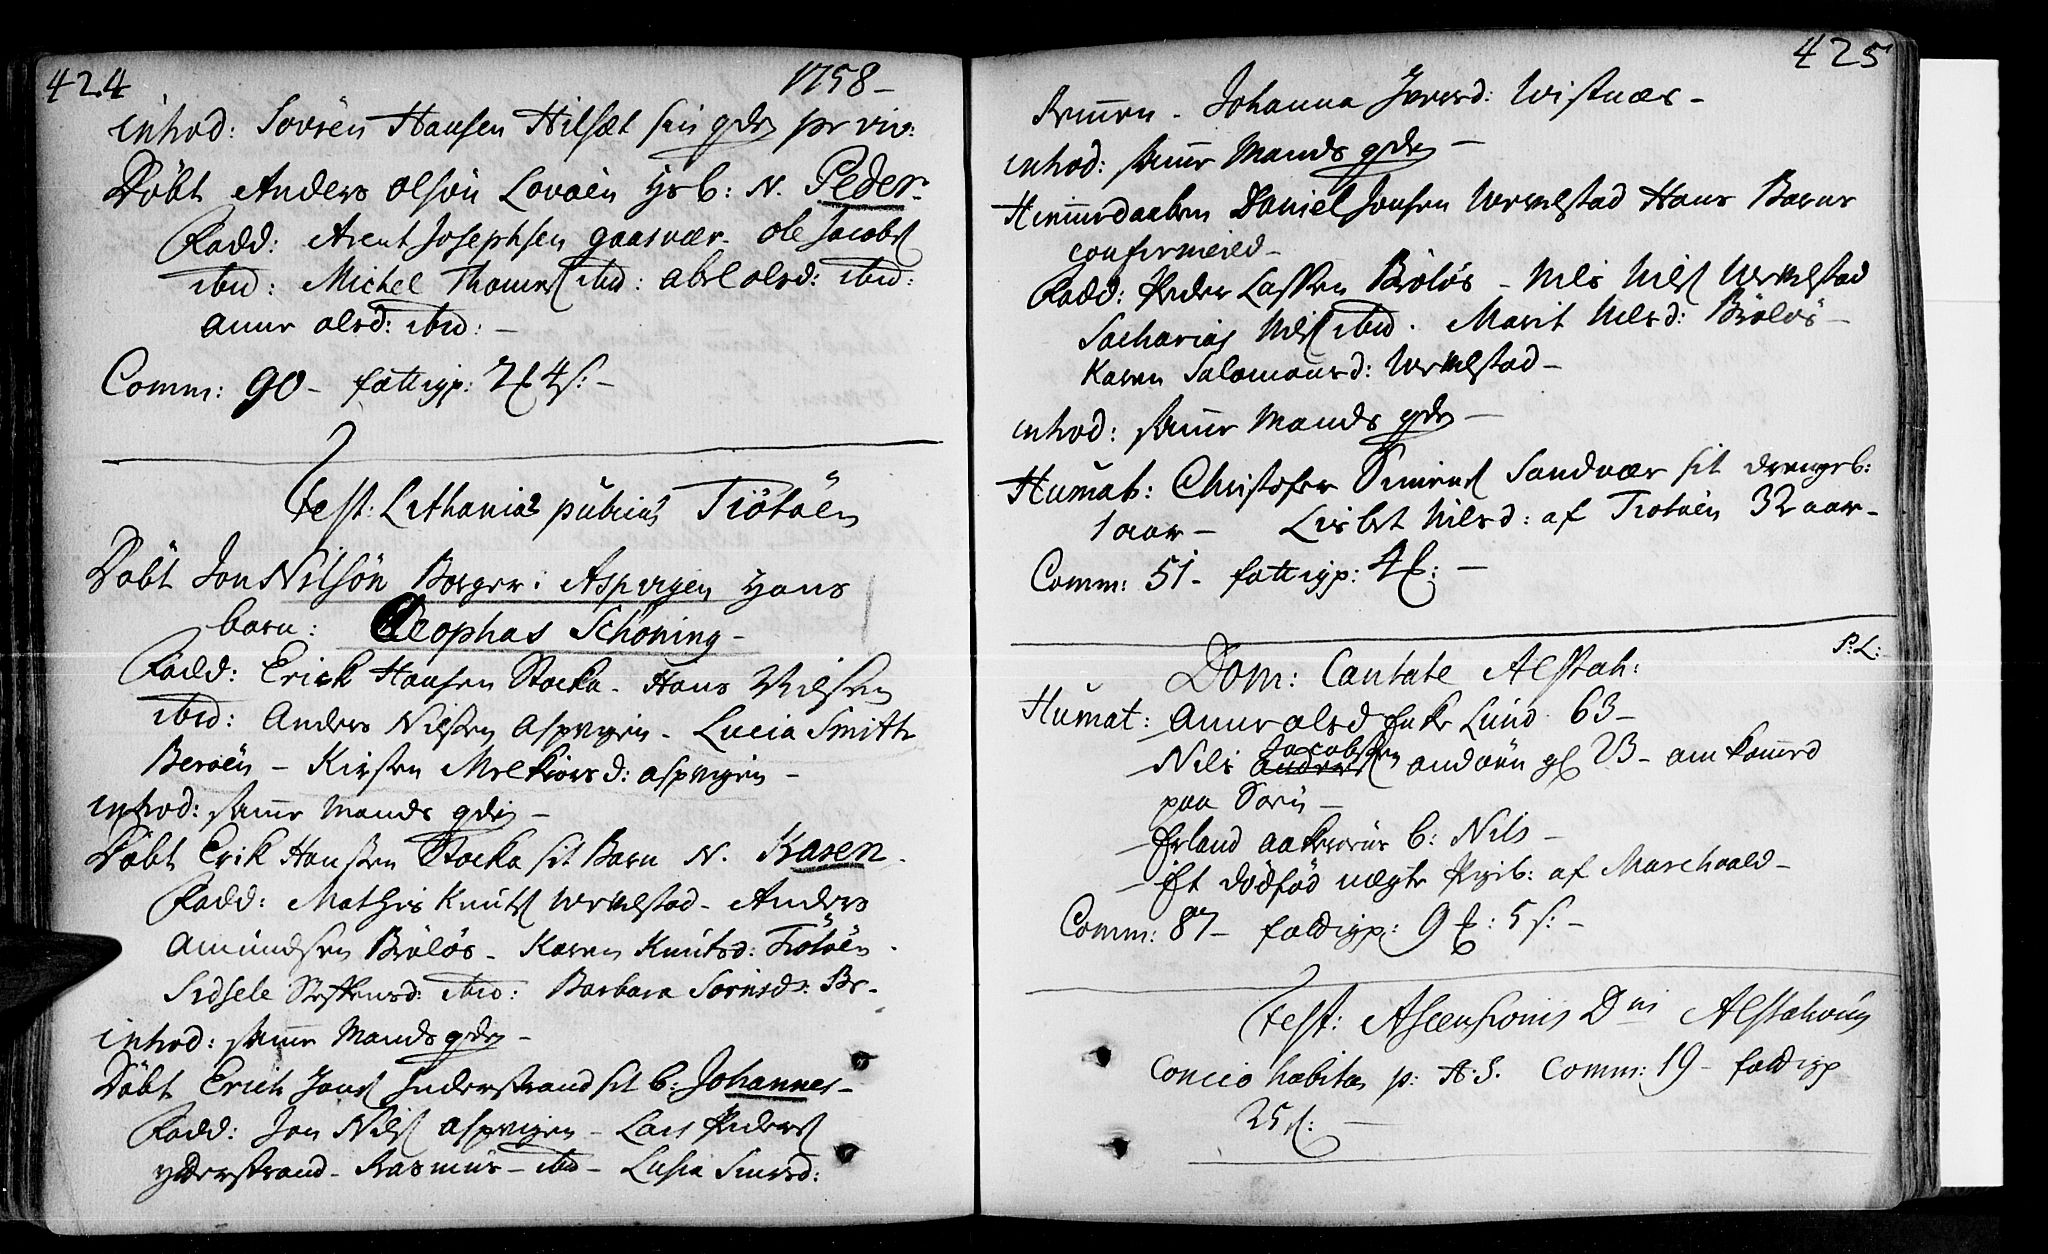 424
1758-
introd: Sövren Hansen Hilsæt sin qvde
Döbt Anders olsön Lovöen hs b: N. Peder.
Fadd: Arent Josephsen gaasvær. ole Jacobs
ibid: Michel Thomes ibid: abel olsd: ibid:
anne olsd: ibid: -
Comm: 90 - fattigp: 4 s: -
Fest: Lithanias publicus Tiötöen
Döbt Jon Nilsön Borger i Aspvigen hans
barn: Cleophas Schöning -
Fadd: Erick Hansen Stocka. Hans Nilsen
ibid: Anders Nilsen Aspvigen - Lucia Smith
Beröen - Kirsten Melkiorsd: aspvigen -
introd: samme Mands qvde -
Döbt Erik Hansen Stocka sit Barn N. Karen.
Fadd: Mathis Knuts Urvelstad - Anders
Amundsen Bröløs - Karen Knutsd: Tiötöen.
Sidsele Steffensd: ibid: Barbara Sörensd: Br-
introd: samme Mands qvde -
Döbt Erich Jons Inderstrand sit b: Johannes -
Fadd: Jon Nils aspvigen - Lars Peders
yderstrand - Rasmus - ibid - Lusia Simesd:
425
Bremen - Johanna Iversd: Wistnæs -
introd: samme Mands qvde -
Hiemmedaaben Daniel Jonsen Urvelstad Hans Barns
confirmeied -
Fadd: Peder Lassen Bröløs - Nils Nils Urvelstad
Sacharias Nils ibid. Marit Nilsd: Bröløs -
Karen Salomonsd: Urvelstad -
introd: samme Mands qvde -
Humat: Christofer Simens Sandvær sit drengeb:
1 aar - Lisbet Nilsd: af Tiötöen 32 aar -
Comm: 51 - fattigp: 4 : -
S: L:
Dom: Cantate Alstah:
Humat: Anne olsd Enke Lund 63 -
Nils Jacobsen anders andöen gl 23 - omkomed
paa Söen -
Erland aakervig b: Nils -
Et dödföd uægte Pigeb: af Marchvold -
Comm: 87 - fattigp: 9 : 5 s: -
Fest: Ascensionis Dni Alstahoug
Concio habita p: H. S. Comm: 19 - fattigp
25 s: -